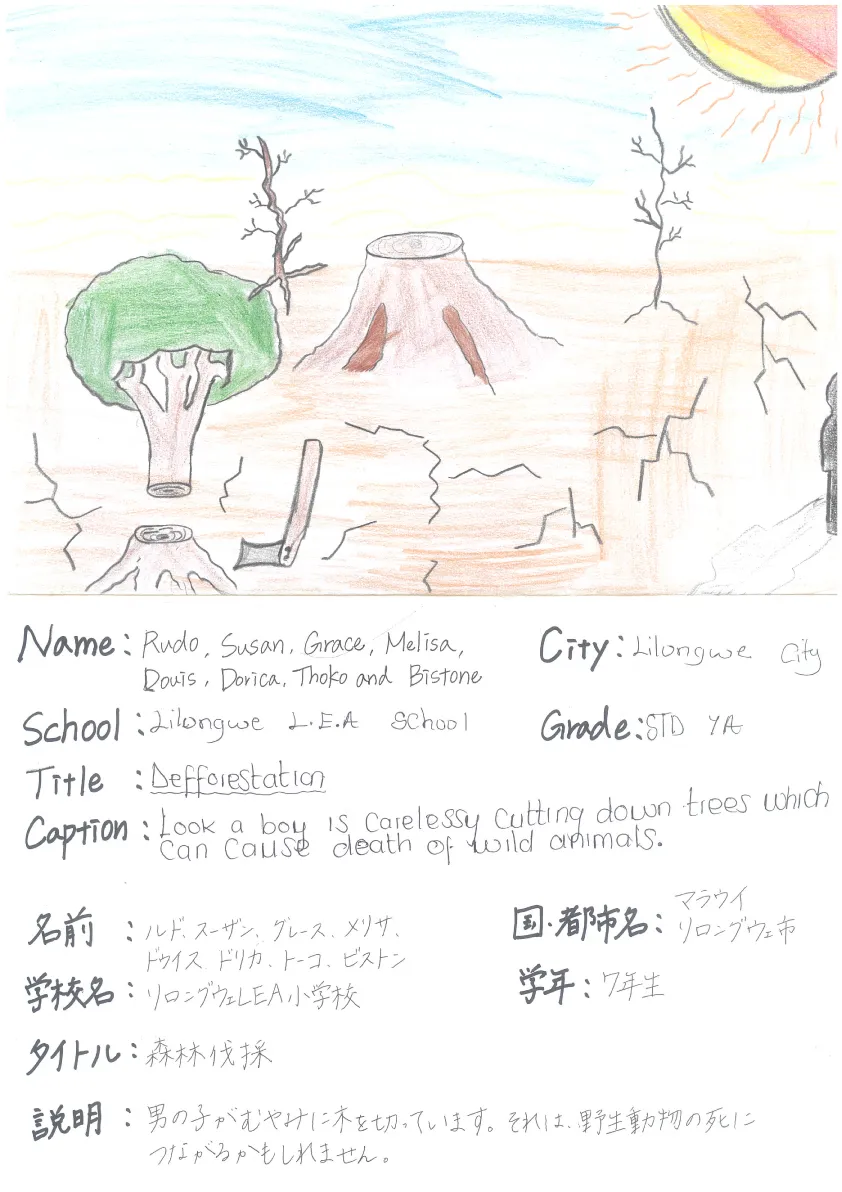 Name: Rudo, Susan, Grace, Melisa,
Douis, Dorica, Thoko and Bistone
City: Lilongwe City
School: Lilongwe L.E.A School
Grade: STD 7A
Title: Defforestation
Caption: Look a boy is carelessy cutting down trees which
can cause death of wild animals.
名前: ルド、スーザン、グレース、メリサ、
ドゥイス、ドリカ、トーコ、ビストン
国・都市名: マラウイ
リロングウェ市
学校名: リロングウェLEA小学校
学年: 7年生
タイトル: 森林伐採
説明: 男の子がむやみに木を切っています。それは、野生動物の死に
つながるかもしれません。